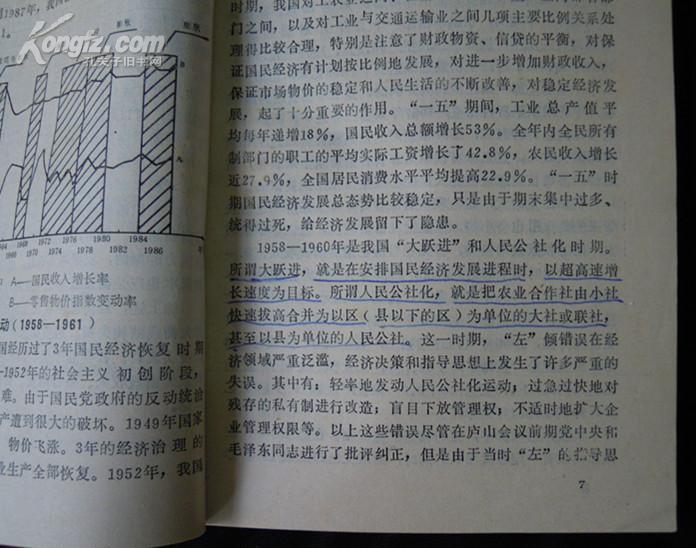 1987年，我国
Kongfz.com
孔夫子旧书网
1964 1968 1972 1976 1980 1984
1966 1970 1974 1978 1982 1986
A——国民收入增长率
B——零售物价指数变动率
动(1958—1961)
国经历过了3年国民经济恢复时期
—1952年的社会主义初创阶段，
难。由于国民党政府的反动统治
产遭到很大的破坏。1949年国家
物价飞涨。3年的经济治理的
业生产全部恢复。1952年，我国
门之间，以及对工业与交通运输业之间几项主要比例关系处
理得比较合理，特别是注意了财政物资、信贷的平衡，对保
证国民经济有计划按比例地发展，对进一步增加财政收入，
保证市场物价的稳定和人民生活的不断改善，对稳定经济发
展，起了十分重要的作用。“一五”期间，工业总产值平
均每年递增18%，国民收入总额增长53%。全年内全民所有
制部门的职工的平均实际工资增长了42.8%，农民收入增长
近27.9%，全国居民消费水平平均提高22.9%。“一五”时
期国民经济发展总态势比较稳定，只是由于期末集中过多、
统得过死，给经济发展留下了隐患。
1958—1960年是我国“大跃进”和人民公社化时期。
所谓大跃进，就是在安排国民经济发展进程时，以超高速增
长速度为目标。所谓人民公社化，就是把农业合作社由小社
快速拔高合并为以区(县以下的区)为单位的大社或联社，
甚至以县为单位的人民公社。这一时期，“左”倾错误在经
济领域严重泛滥，经济决策和指导思想上发生了许多严重的
失误。其中有：轻率地发动人民公社化运动；过急过快地对
残存的私有制进行改造；盲目下放管理权；不适时地扩大企
业管理权限等。以上这些错误尽管在庐山会议前期党中央和
毛泽东同志进行了批评纠正，但是由于当时“左”的指导思
7